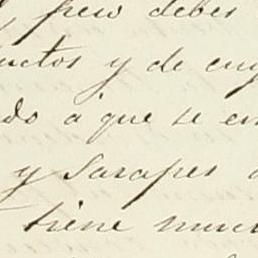 peso deber
uctos y de cuy
do a' que se en
y Sarapes a
tiene much